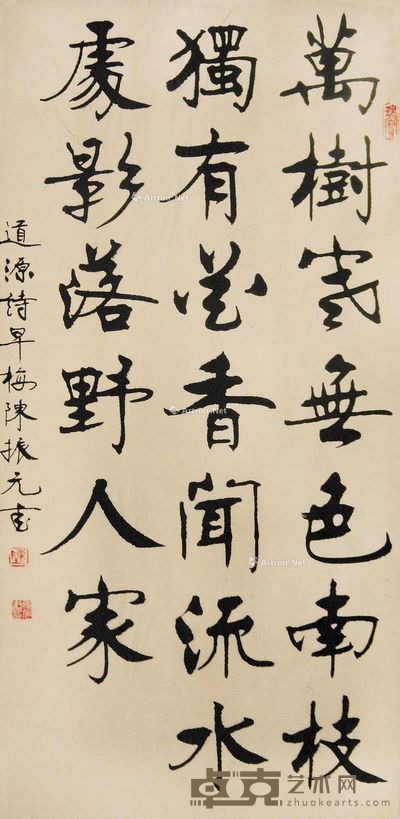 萬樹寒無色南枝
獨有花香聞流水
處影落野人家
道源詩早梅陳振元書
Artron.Net
卓克艺术网
zhuokearts.com